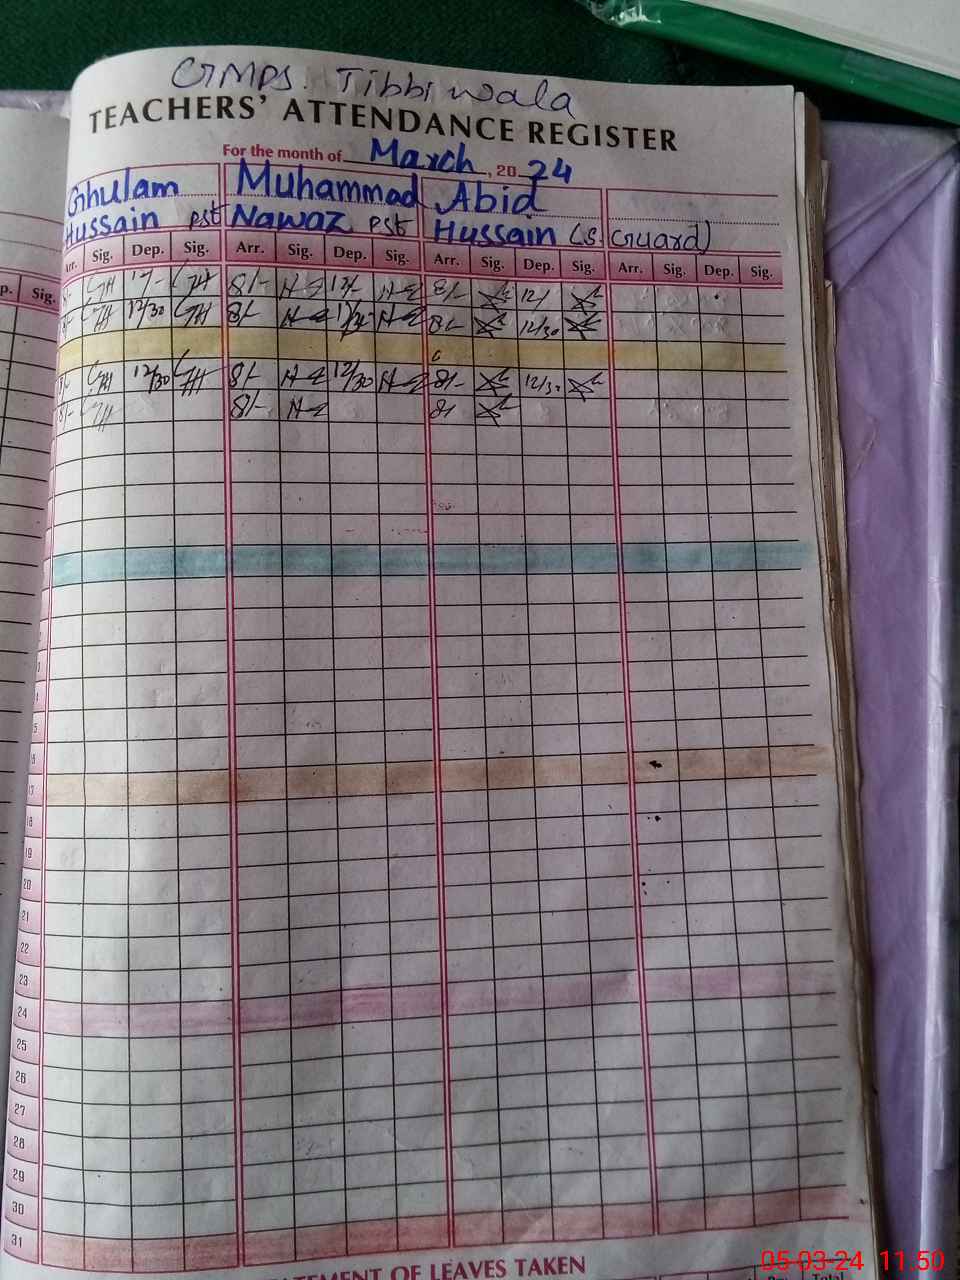 GMPS. Tibbi wala
TEACHERS' ATTENDANCE REGISTER
For the month of March, 20 24
Ghulam Muhammad Abid
Hussain PST Nawaz PST Hussain (S. Guard)
p. Sig. Arr. Sig. Dep. Sig. Arr. Sig. Dep. Sig. Arr. Sig. Dep. Sig. Arr. Sig. Dep. Sig.
8/- GH GH 8/- 12/- 8/- 12/
8/- GH 12/30 GH 8/- 8/- 12/30
8/- GH 12/30 GH 8/- 12/30 8/- 12/30
8/- GH 8/- 8/
17
18
19
20
21
22
23
24
25
26
27
28
29
30
31
TATEMENT OF LEAVES TAKEN
Total
05-03-24 11:50